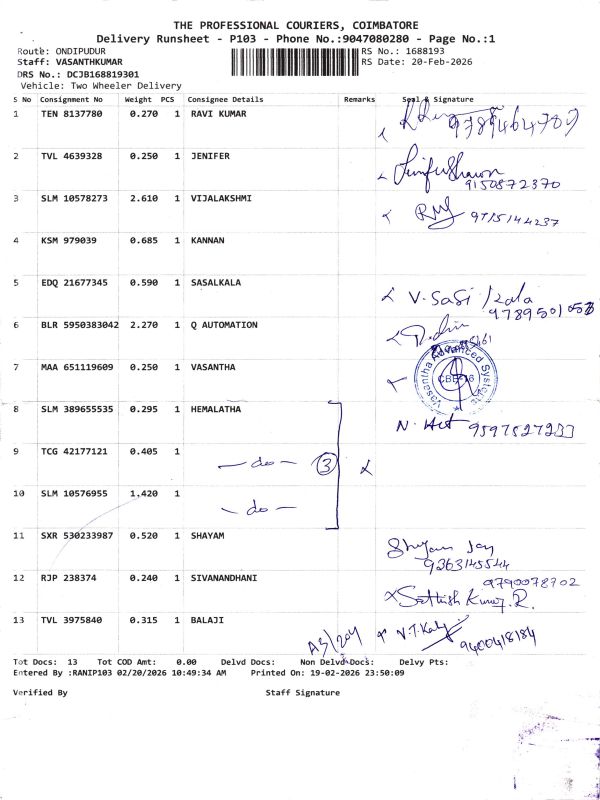 THE PROFESSIONAL COURIERS, COIMBATORE
Delivery Runsheet - P103 - Phone No.:9047080280 - Page No.:1
Route: ONDIPUDUR RS No.: 1688193
Staff: VASANTHKUMAR RS Date: 20-Feb-2026
DRS No.: DCJB168819301
Vehicle: Two Wheeler Delivery
S No Consignment No Weight PCS Consignee Details Remarks Seal & Signature
1 TEN 8137780 0.270 1 RAVI KUMAR
2 TVL 4639328 0.250 1 JENIFER
9150872370
3 SLM 10578273 2.610 1 VIJALAKSHMI
9715144237
4 KSM 979039 0.685 1 KANNAN
5 EDQ 21677345 0.590 1 SASALKALA V. Sasi kala
6 BLR 5950383042 2.270 1 Q AUTOMATION
7 MAA 651119609 0.250 1 VASANTHA Vasantha Advanced Systems
8 SLM 389655535 0.295 1 HEMALATHA
9 TCG 42177121 0.405 1 -do- 3
10 SLM 10576955 1.420 1 -do-
11 SXR 530233987 0.520 1 SHAYAM
9363145544
12 RJP 238374 0.240 1 SIVANANDHANI 9790078702
Sathish Kumar. R.
13 TVL 3975840 0.315 1 BALAJI 9400418184
Tot Docs: 13 Tot COD Amt: 0.00 Delvd Docs: Non Delvd Docs: Delvy Pts:
Entered By :RANIP103 02/20/2026 10:49:34 AM Printed On: 19-02-2026 23:50:09
Verified By Staff Signature